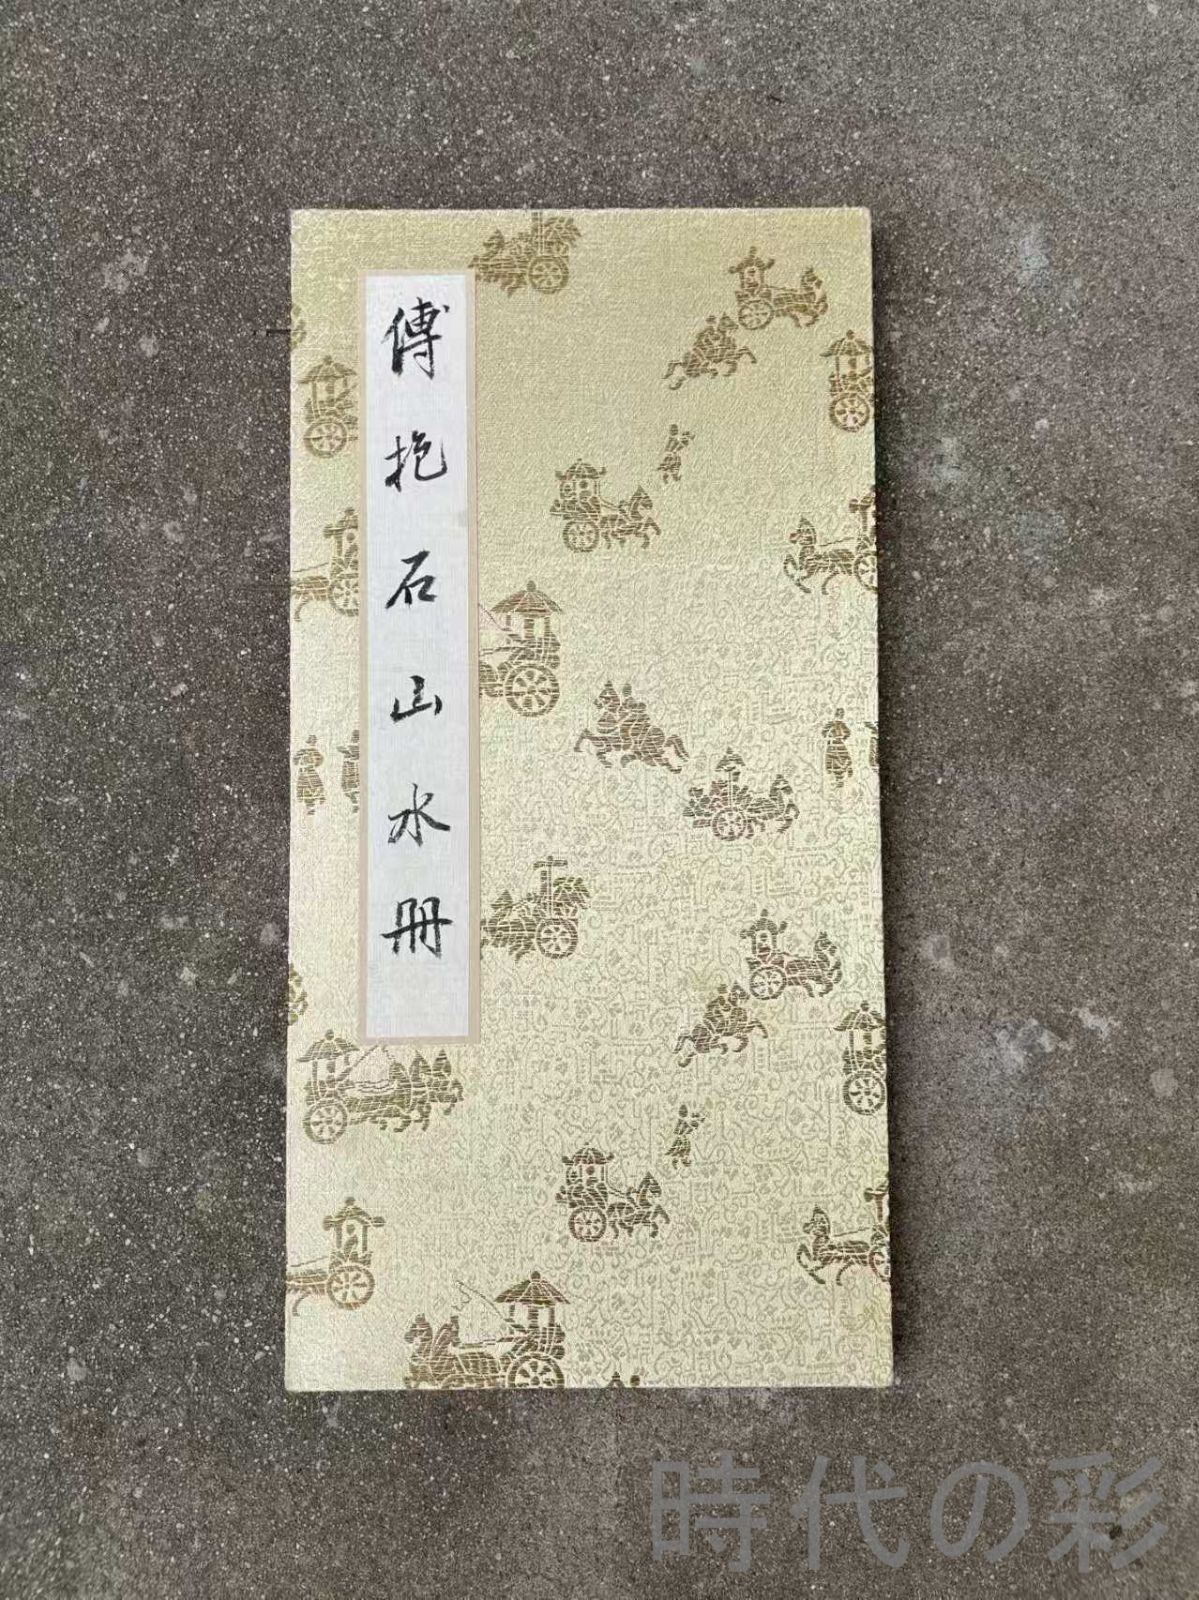 傅抱石山水册
時代の彩